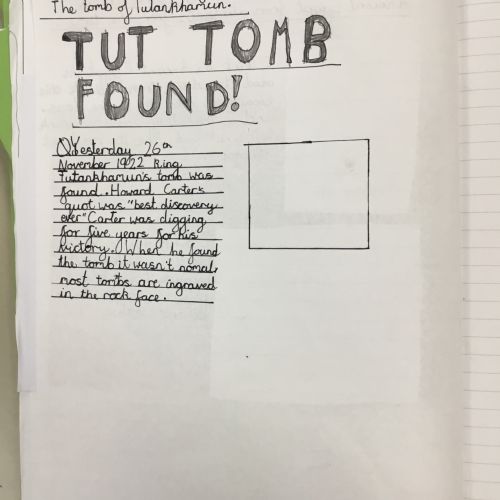 The tomb of Tutankhamun.
TUT TOMB
FOUND!
Yesterday 26th
November 1922 King
Tutankhamun's tomb was
found. Howard Carter's
quot was "best discovery
ever" Carter was digging
for five years for his
victory. When he found
the tomb it wasn't nomal,
most tombs are ingraved
in the rock face.